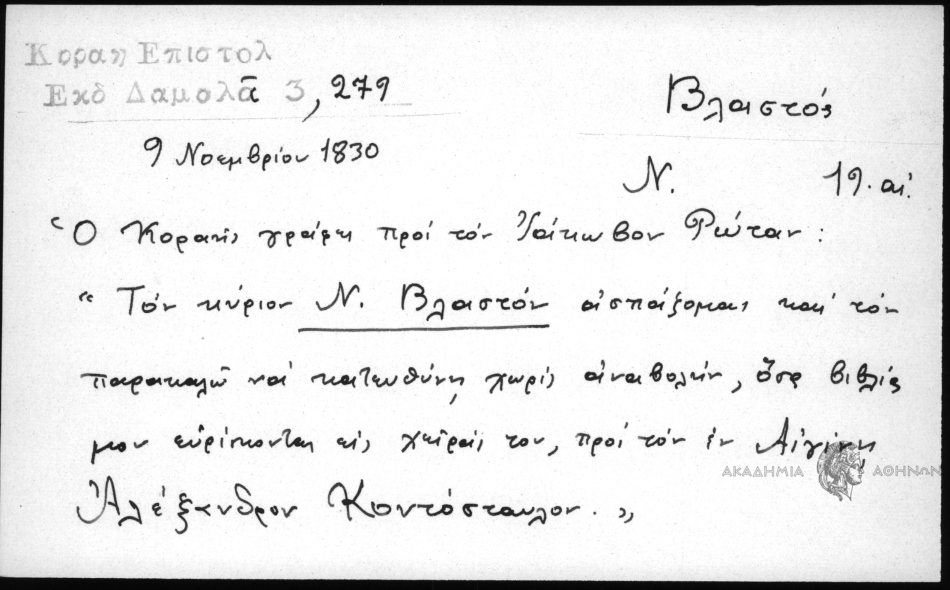 Κοραη Επιστολ
Εκδ Δαμαλᾶ 3, 279
Βλαστός
9 Νοεμβρίου 1830
Ν. 19. αἰ.
Ὁ Κοραῆς γράφει πρὸς τὸν Ἰάκωβον Ρώταν:
"Τὸν κύριον Ν. Βλαστὸν ἀσπάζομαι καὶ τὸν
παρακαλῶ νὰ κατευθύνῃ, χωρὶς ἀναβολήν, ὅσα βιβλία
μου εὑρίσκονται εἰς χεῖράς του, πρὸς τὸν ἐν Αἰγίνῃ
ΑΚΑΔΗΜΙΑ ΑΘΗΝΩΝ
Ἀλέξανδρον Κοντόσταυλον."